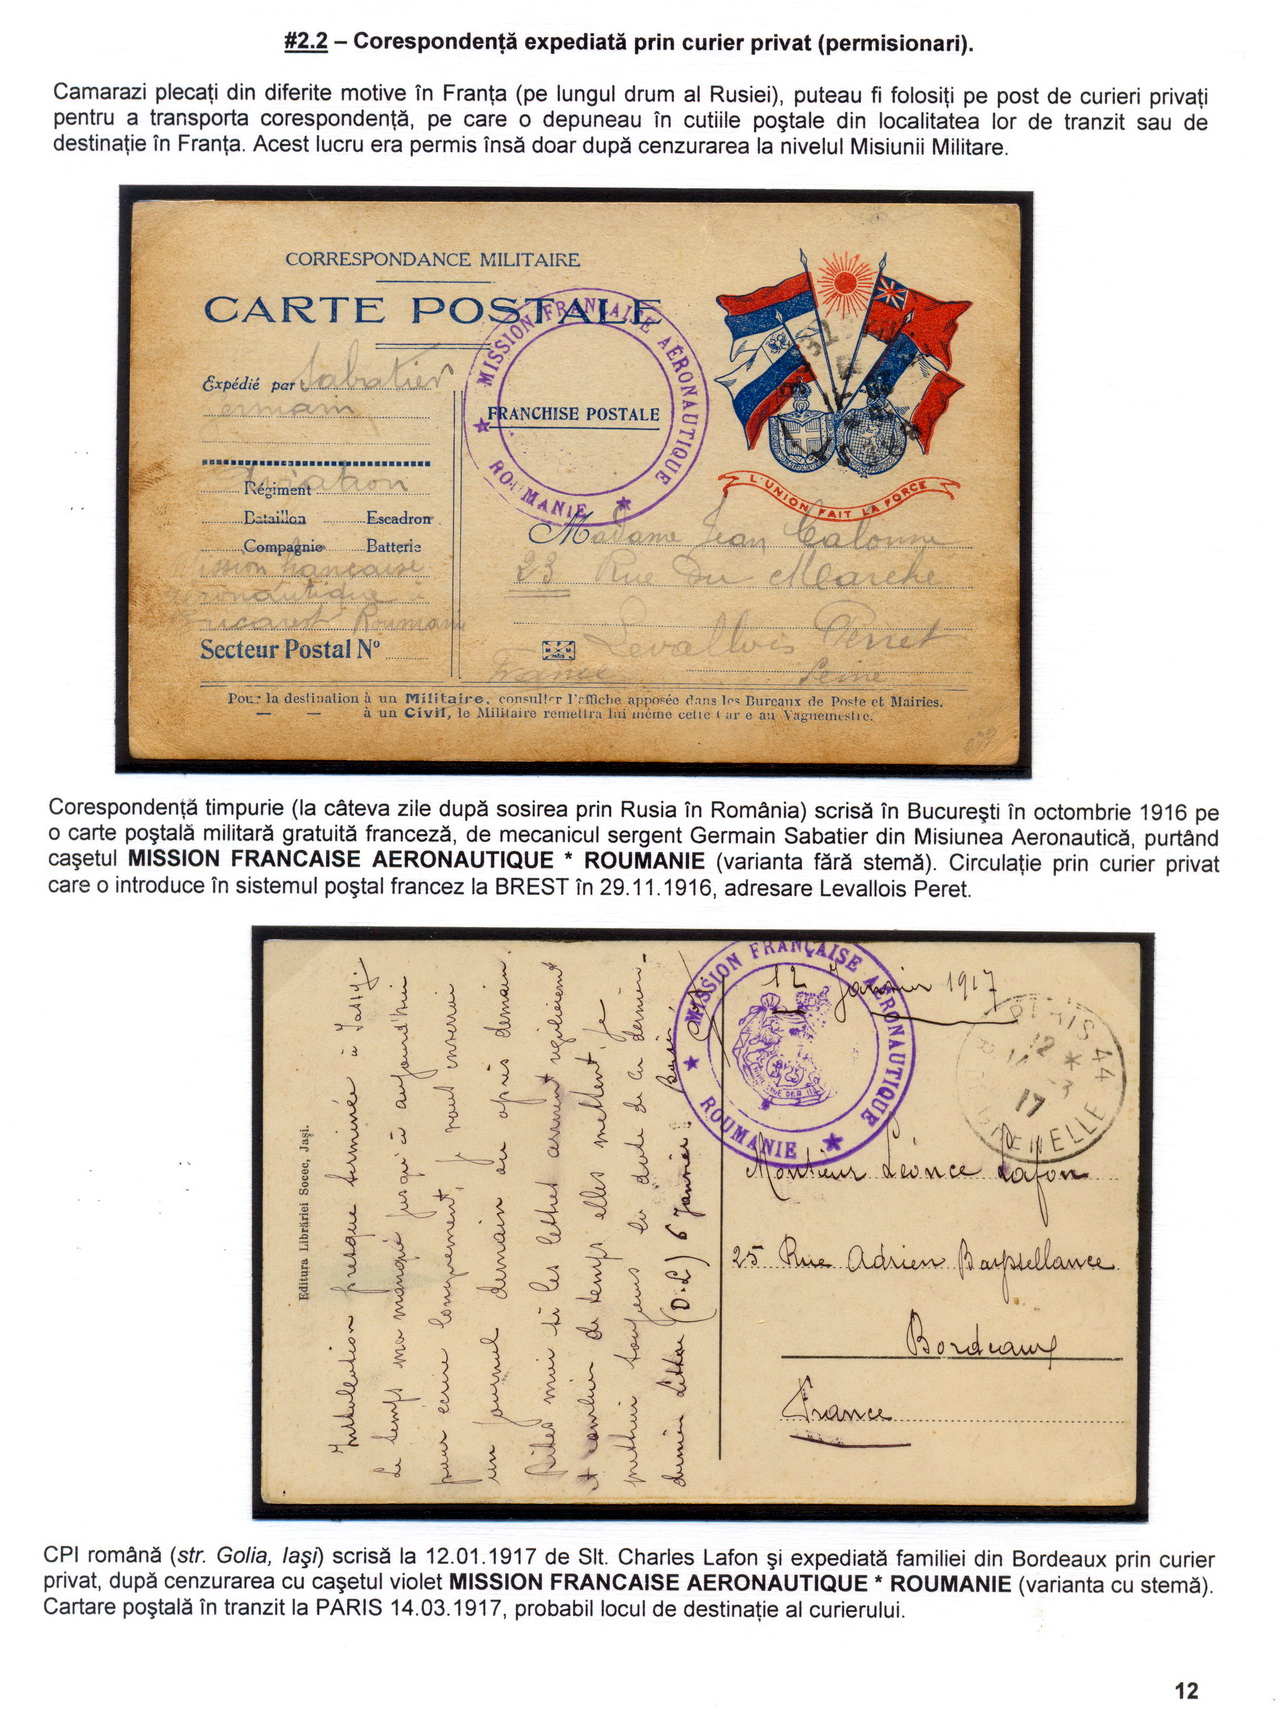 #2.2 – Corespondenţă expediată prin curier privat (permisionari).
Camarazi plecaţi din diferite motive în Franţa (pe lungul drum al Rusiei), puteau fi folosiţi pe post de curieri privaţi
pentru a transporta corespondenţă, pe care o depuneau în cutiile poştale din localitatea lor de tranzit sau de
destinaţie în Franţa. Acest lucru era permis însă doar după cenzurarea la nivelul Misiunii Militare.
CORRESPONDANCE MILITAIRE
CARTE POSTALE
MISSION FRANÇAISE AÉRONAUTIQUE
★ ROUMANIE ★
FRANCHISE POSTALE
L'UNION FAIT LA FORCE
Expédié par Sabatier
Germain
Aviation
Régiment
Bataillon Escadron
Compagnie Batterie
Mission française
aéronautique à
Bucarest Roumanie
Secteur Postal Nº
Madame Jean Calonne
23 Rue Du Marché
Levallois Perret
France Seine
Pour la destination à un Militaire, consulter l'affiche apposée dans les Bureaux de Poste et Mairies.
— — à un Civil, le Militaire remettra lui même cette Carte au Vaguemestre.
Corespondenţă timpurie (la câteva zile după sosirea prin Rusia în România) scrisă în Bucureşti în octombrie 1916 pe
o carte poştală militară gratuită franceză, de mecanicul sergent Germain Sabatier din Misiunea Aeronautică, purtând
caşetul MISSION FRANCAISE AERONAUTIQUE * ROUMANIE (varianta fără stemă). Circulaţie prin curier privat
care o introduce în sistemul poştal francez la BREST în 29.11.1916, adresare Levallois Peret.
Editura Librăriei Socec, Jaşi.
Installation presque terminée à Jassy.
Le temps m'a manqué jusqu'à aujourd'hui
pour écrire longuement, je vous enverrai
un journal demain ou après demain.
Dites moi si les lettres arrivent régulièrement
et combien de temps elles mettent. Je
mettrai toujours la date de la dernière
dernière lettre (D.L) 6 Janvier.
MISSION FRANÇAISE AÉRONAUTIQUE
★ ROUMANIE ★
12 Janvier 1917
PARIS 44
12 *
14 - 3
17
R. DE GRENELLE
Monsieur Léonce Lafon
25 Rue Adrien Bayssellance
Bordeaux
France
CPI română (str. Golia, Iaşi) scrisă la 12.01.1917 de Slt. Charles Lafon şi expediată familiei din Bordeaux prin curier
privat, după cenzurarea cu caşetul violet MISSION FRANCAISE AERONAUTIQUE * ROUMANIE (varianta cu stemă).
Cartare poştală în tranzit la PARIS 14.03.1917, probabil locul de destinaţie al curierului.
12